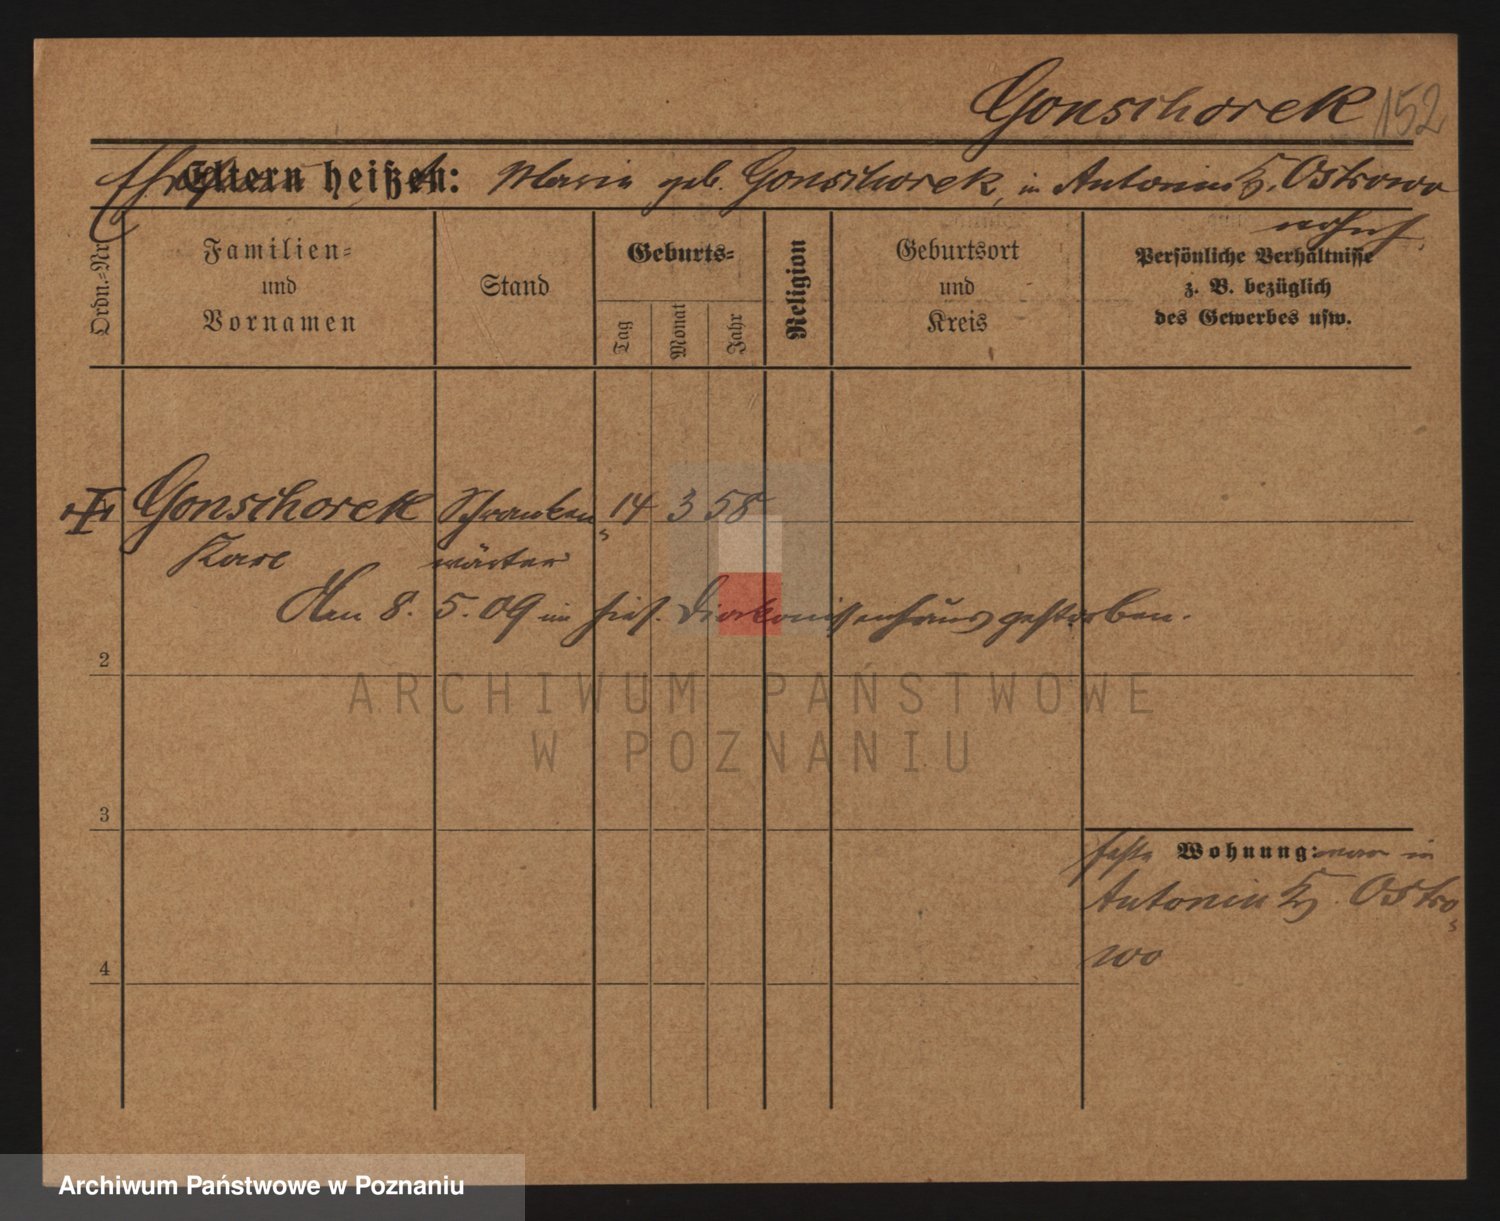 Gonschorek 152
Ehefrau Eltern heißen: Maria geb. Gonschorek, in Antonin Kr. Ostrowo
wohnh.
Ordn.-Nr.
Familien-
und
Vornamen
Stand
Geburts-
Tag
Monat
Jahr
Religion
Geburtsort
und
Kreis
Persönliche Verhältnisse
z. B. bezüglich
des Gewerbes usw.
Gonschorek Schranken 14 3 58
Karl wärter
Am 8. 5. 09 im hies. Diakonissenhaus gestorben.
2
3
4
feste Wohnung: war in
Antonin Kr. Ostro
wo
ARCHIWUM PAŃSTWOWE
W POZNANIU
Archiwum Państwowe w Poznaniu